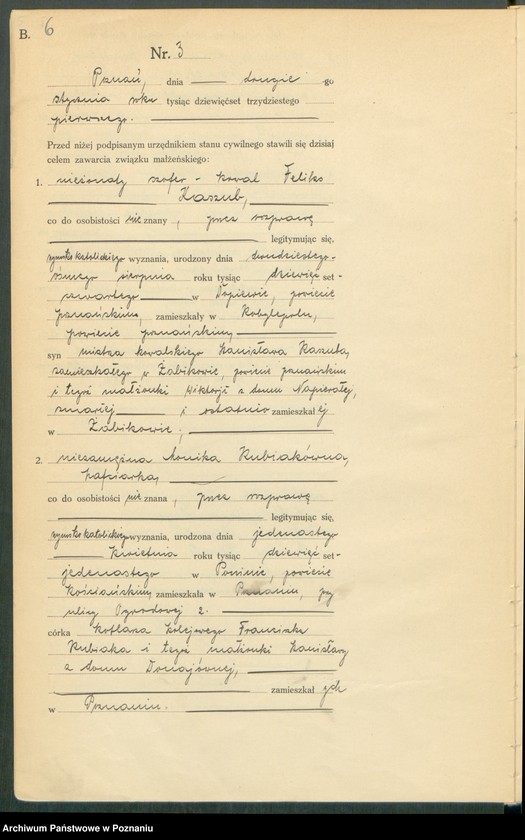 B. 6
Nr. 3
Poznań, dnia drugie go
stycznia roku tysiąc dziewięćset trzydziestego
pierwszego.
Przed niżej podpisanym urzędnikiem stanu cywilnego stawili się dzisiaj
celem zawarcia związku małżeńskiego:
1. nieżonaty szofer - kowal Feliks
Kaszub,
co do osobistości nie znany, przez rozprawę
legitymując się,
rzymsko katolickiego wyznania, urodzony dnia dwudziestego-
ósmego sierpnia roku tysiąc dziewięć set-
czwartego w Dopiewie, powiecie
poznańskim, zamieszkały w Kobylepolu,
powiecie poznańskim,
syn mistrza kowalskiego Stanisława Kaszuba,
zamieszkałego w Żabikowie, powiecie poznańskim
i tegoż małżonki Wiktorji z domu Napierałej,
zmarłej i ostatnio zamieszkał ej
w Żabikowie;
2. niezamężna Monika Kubiakówna,
co do osobistości nie znana, przez rozprawę
legitymując się,
rzymsko katolickiego wyznania, urodzona dnia jedenastego
kwietnia roku tysiąc dziewięć set-
jedenastego w Poninie, powiecie
kościańskim, zamieszkała w Poznaniu, przy
ulicy Ogrodowej 2.
córka kotlarza kolejowego Franciszka
Kubiaka i tegoż małżonki Stanisławy
z domu
zamieszkał ych
w Poznaniu.
Archiwum Państwowe w Poznaniu